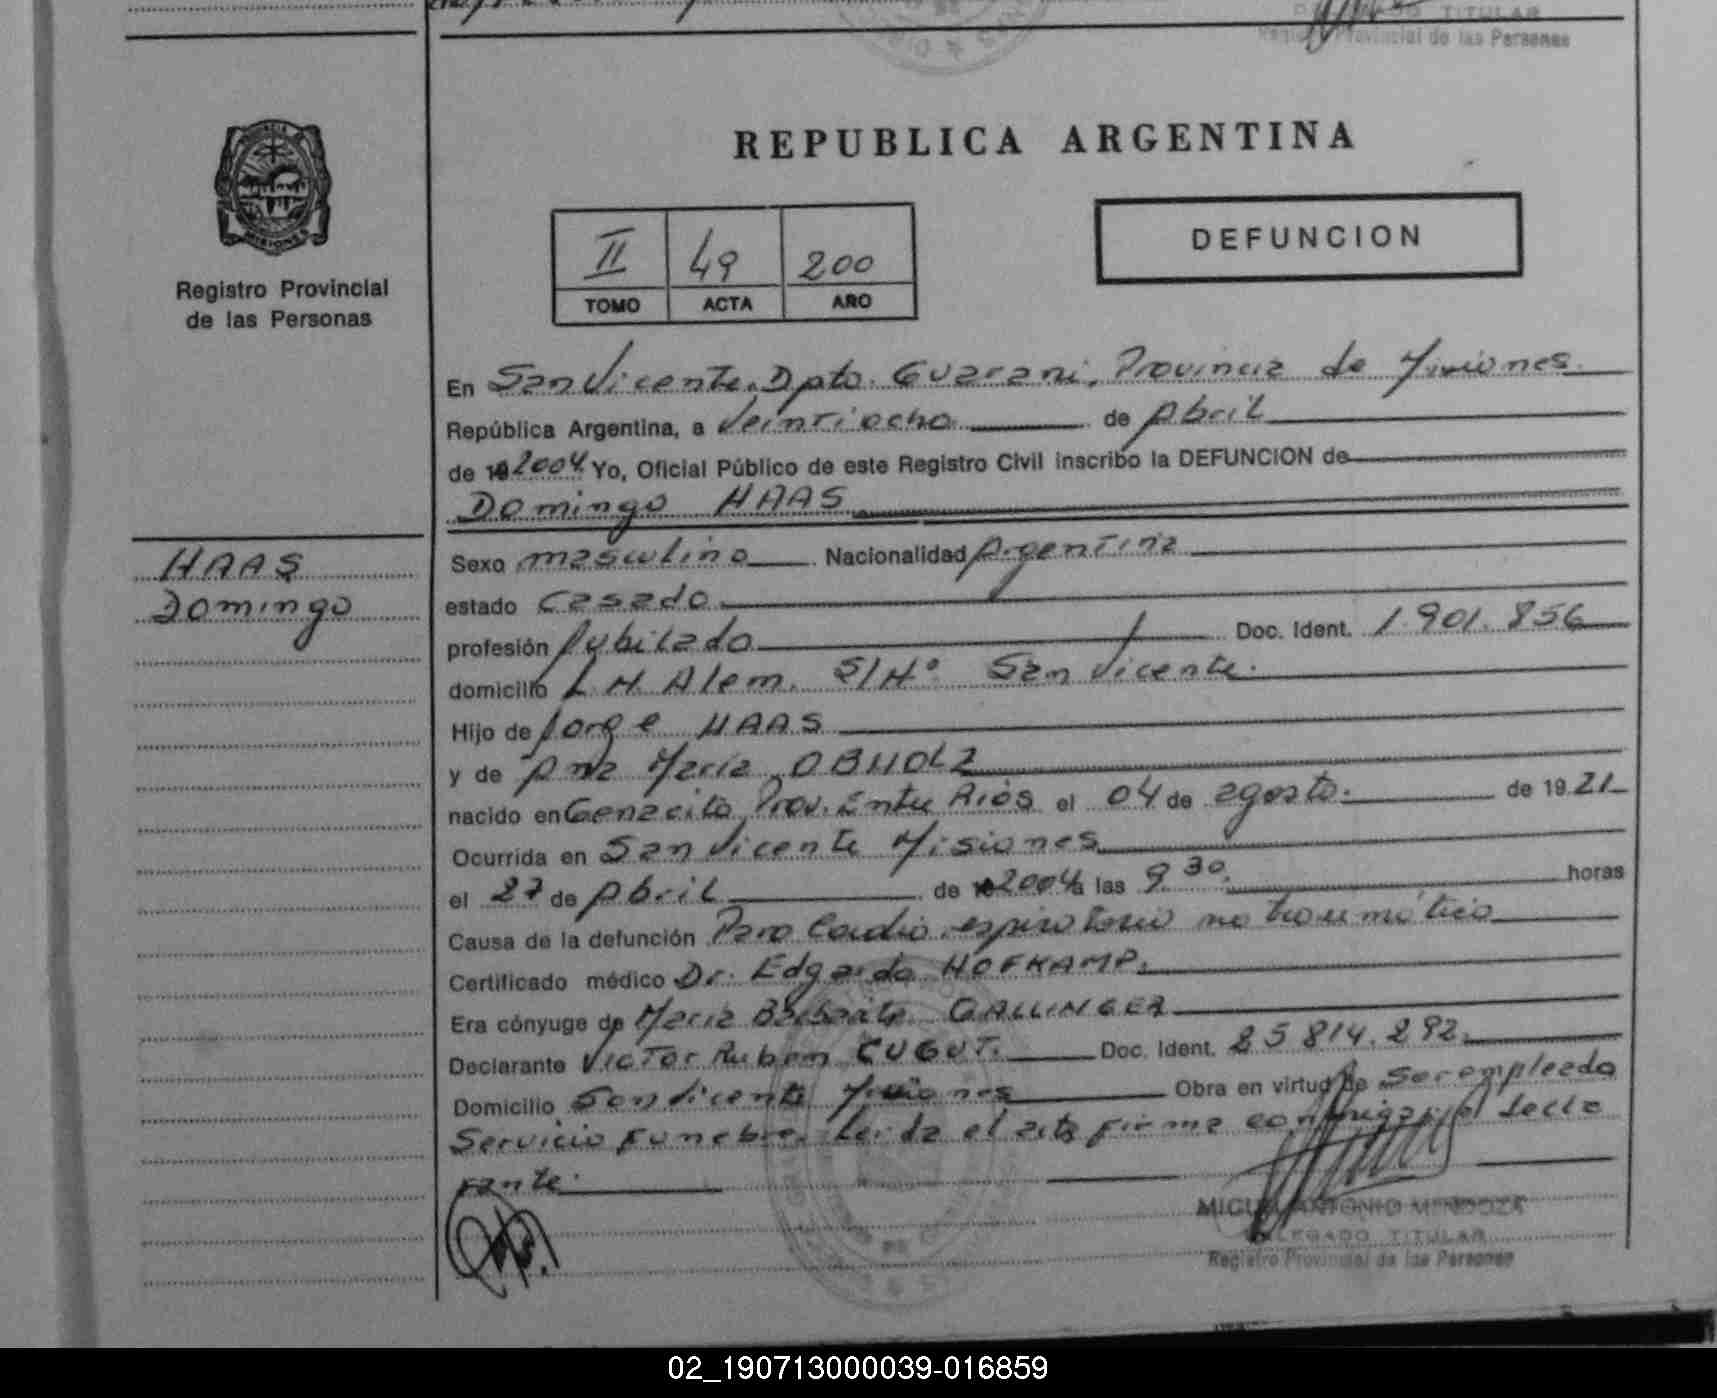 DELEGADO TITULAR
Registro Provincial de las Personas
REPUBLICA ARGENTINA
MISIONES
Registro Provincial
de las Personas
II 49 200
TOMO ACTA AÑO
DEFUNCION
En San Vicente, Dpto. Guarani, Provincia de Misiones.
República Argentina, a Veintiocho de Abril
de 19 2004 Yo, Oficial Público de este Registro Civil inscribo la DEFUNCION de
Domingo HAAS
HAAS
Domingo
Sexo masculino Nacionalidad Argentina
estado casado
profesión Jubilado Doc. Ident. 1.901.856
domicilio L. N. Alem. S/Nº San Vicente.
Hijo de Jorge HAAS
y de Ana Maria OBHOLZ
nacido en Genacito, Prov. Entre Rios el 04 de agosto. de 1921
Ocurrida en San Vicente Misiones
el 27 de Abril de 19 2004 a las 9 30 horas
Causa de la defunción Paro Cardio respiratorio no traumático
Certificado médico Dr. Edgardo HOFKAMP.
Era cónyuge de Maria Barbarita GALLINGER
Declarante Victor Ruben CUGUT. Doc. Ident. 25.814.292
Domicilio San Vicente Misiones Obra en virtud de Ser empleado
Servicio Funebre. Leida el acta firma conmigo el decla
rante.
MIGUEL ANTONIO MENDOZA
DELEGADO TITULAR
Registro Provincial de las Personas
02_190713000039-016859